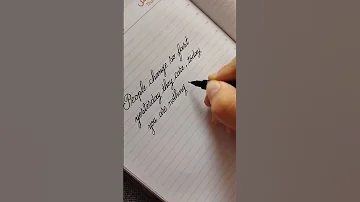 People change so fast
yesterday they care, today
you are nothing